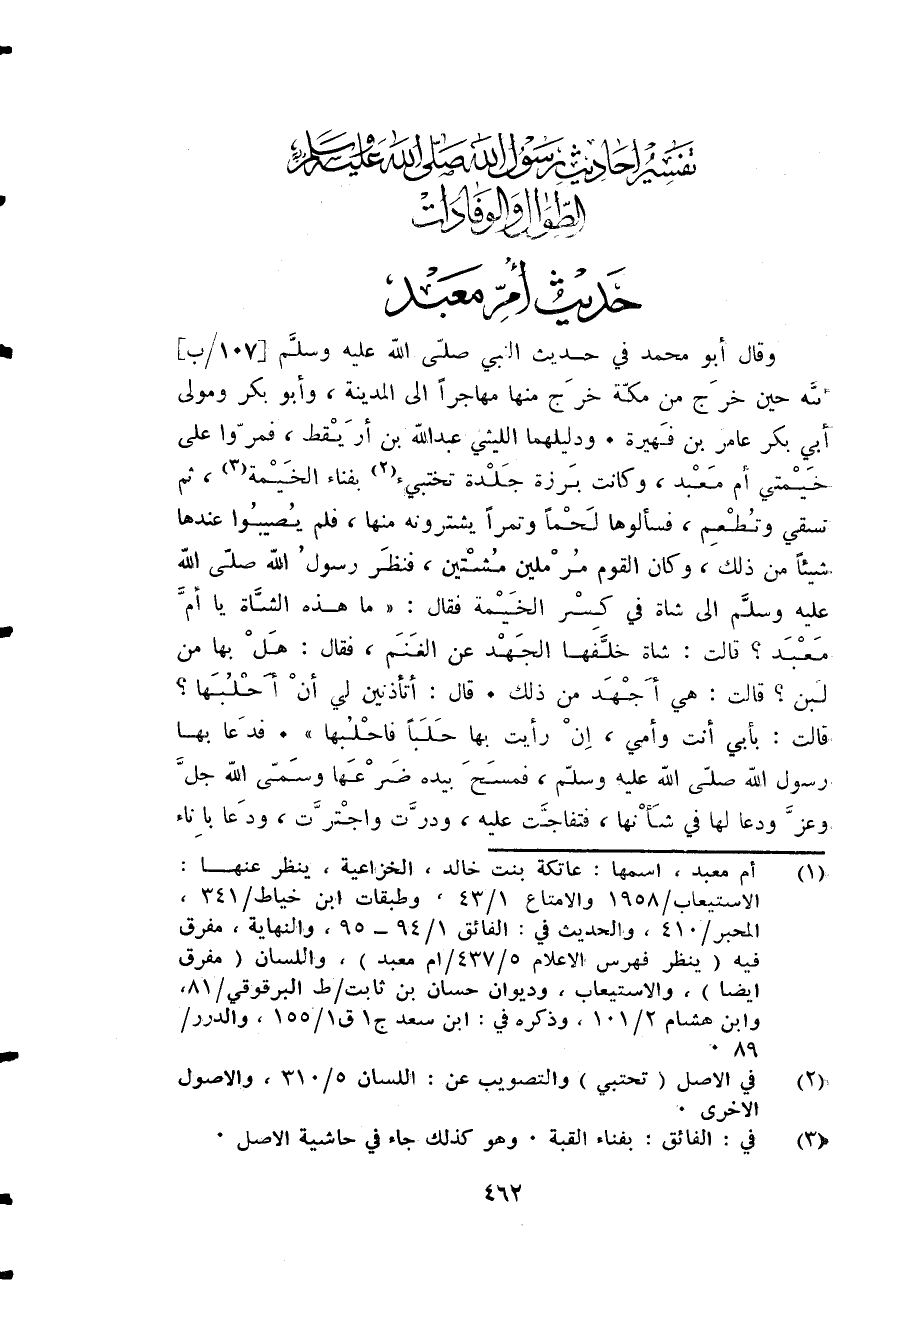 تفسير أحاديث رسول الله صلى الله عليه وسلم
الطوال والوفادات
حديث أم معبد
وقال أبو محمد في حديث النبي صلّى الله عليه وسلّم [١٠٧/ب]
أنّه حين خرَج من مكّة خرَج منها مهاجراً الى المدينة ، وأبو بكر ومولى
أبي بكر عامر بن فُهَيرة ٠ ودليلهما الليثي عبدالله بن أُرَيْقط ، فمرّوا على
خَيْمتي أم مَعْبد ، وكانت بَرزة جَلْدة تختبيء(٢) بفناء الخَيْمة(٣) ، ثم
تسقي وتُطْعِم ، فسألوها لَحْماً وتمراً يشترونه منها ، فلم يُصيبُوا عندها
شيئاً من ذلك ، وكان القوم مُرْملين مُشْتين ، فنظَر رسولُ الله صلّى الله
عليه وسلَّم الى شاة في كِسْر الخَيْمة فقال : « ما هذه الشَّاة يا أمَّ
مَعْبَد ؟ قالت : شاة خلَّفها الجَهْد عن الغَنَم ، فقال : هَلْ بها من
لَبن ؟ قالت : هي أَجْهَد من ذلك ٠ قال : أتأذنين لي أنْ أَحْلُبَها ؟
قالت : بأبي أنت وأمي ، إنْ رأيت بها حَلَباً فاحْلُبها » ٠ فدَعا بها
رسول الله صلّى الله عليه وسلّم ، فمسَحَ بيده ضَرْعَها وسَمّى الله جلَّ
وعزَّ ودعا لها في شَأْنها ، فتفاجَّت عليه ، ودرَّت واجْترَّت ، ودَعا بإناء
(١) أم معبد ، اسمها : عاتكة بنت خالد ، الخزاعية ، ينظر عنها :
الاستيعاب/١٩٥٨ والامتاع ٤٣/١ ، وطبقات ابن خياط/٣٤١ ،
المحبر/٤١٠ ، والحديث في : الفائق ٩٤/١ ــ ٩٥ ، والنهاية ، مفرق
فيه ( ينظر فهرس الاعلام ٤٣٧/٥/ام معبد ) ، واللسان ( مفرق
ايضا ) ، والاستيعاب ، وديوان حسان بن ثابت/ط البرقوقي/٨١،
وابن هشام ١٠١/٢ ، وذكره في : ابن سعد ج١ ق١٥٥/١ ، والدرر/
٨٩ ٠
(٢) في الاصل ( تحتبي ) والتصويب عن : اللسان ٣١٠/٥ ، والاصول
الاخرى ٠
(٣) في : الفائق : بفناء القبة ٠ وهو كذلك جاء في حاشية الاصل ٠
٤٦٢